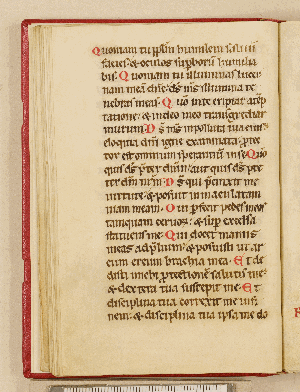 Quoniam tu pplm humilem saluu
facies: & oculos supborum humilia
bis. Quoniam tu illuminas lucer
nam meã dñe: ds ms illumina te
nebras meas. Quo in te eripiar a tep
tatione: & in deo meo transgrediar
murum. Ds ms inpolluta uia eius
eloquia dni igne examinata: ptec
tor est omnium sperantiu in se. Quo
quis ds pter dnm: aut quis ds pre
ter dm nrm. Ds qui pcinxit me
uirtute: & posuit inmaculatam
uiam meam. Qui pfecit pedes meos
tamquam ceruos: & sup excelsa
statuens me. Qui docet manus
meas ad plium: & posuisti ut ar
cum ereum brachia mea. Et de
disti michi ptectione salutis me:
& dextera tua suscepit me. Et
disciplina tua correxit me in fi
nem: & disciplina tua ipsa me do